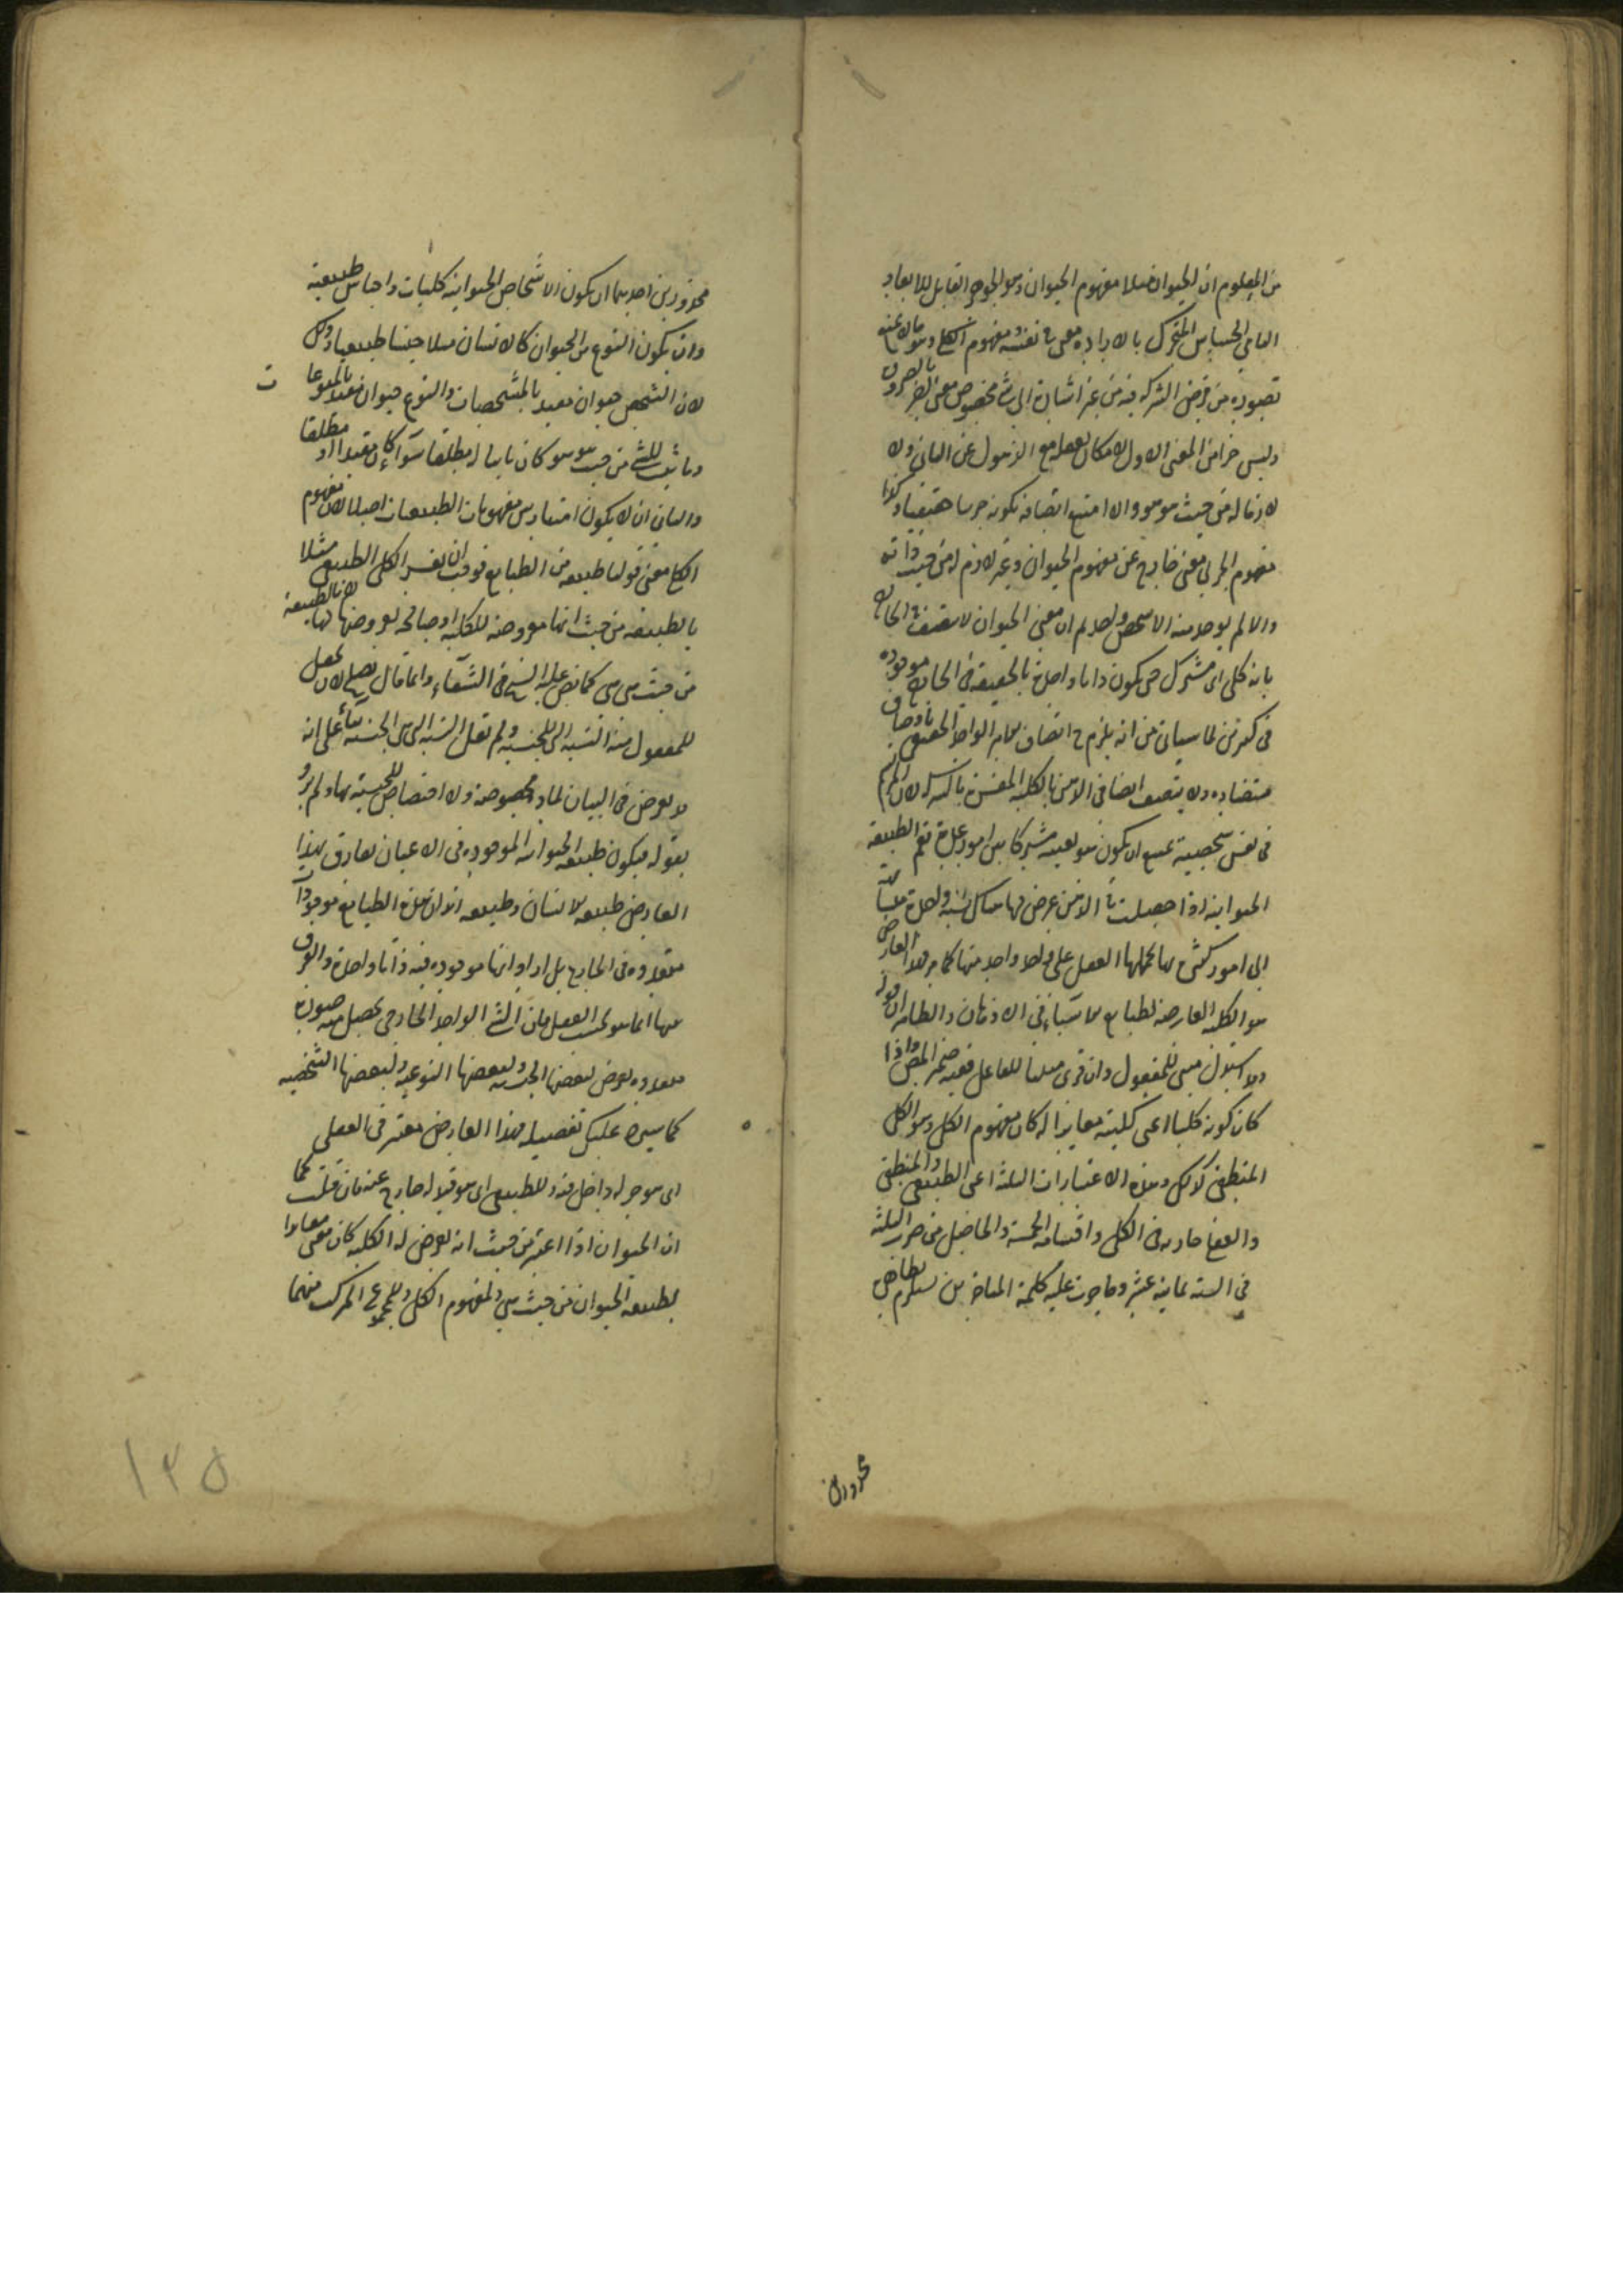 من المعلوم ان الحيوان مثلا مفهوم الحيوان وهو الجوهر القابل للابعاد
النامي الحساس المتحرك بالارادة معنى في نفسه ومفهوم الكلي وهو مالا يمنع
تصوره من فرض الشركة فيه من غير اشارة الى شئ مخصوص معنى اخر بالضرورة
وليس جزأ من المعنى الاول لامكان تعقله مع الذهول عن الثاني ولا
لازما له من حيث هو هو والا امتنع اتصافه بكونه جزئيا حقيقيا وكذا
مفهوم الجزئي معنى خارج عن مفهوم الحيوان وغير لازم له من حيث ذاته
والا لم يوجد منه الا شخص واحد ثم ان معنى الحيوان لا يتصف في الخارج
بانه كلي اى مشترك حتى يكون ذاتا واحدة بالحقيقة في الخارج موجودة
في كثيرين لما سياتي من انه يلزم ح اتصاف الواحد الحقيقي باوصاف
متضادة ولا يتصف ايضا في الذهن بالكلية المفسرة بالشركة لان المرتسم
في نفس شخصية يمتنع ان يكون هو بعينه مشتركا بين امور خارجة نعم الطبيعة
الحيوانية اذا حصلت في الذهن عرض لها نسبة واحدة
الى امور كثيرة بها يحملها العقل على واحد واحد منها كما مر فهذا العارض
هو الكلية العارضة لطبايع الاشياء في الاذهان والظاهر ان قوله
ولا استدل مبنى للمفعول وان قرى مبنيا للفاعل ففيه ضمير المص واذا
كان كونه كليا اعنى كليته مغايرا له كان مفهوم الكل وهو الكلى
المنطقى كذلك وهذه الاعتبارات الثلثة اعنى الطبيعى والمنطقى
والعقلى جارية في الكلى واقسامه الخمسة والحاصل من ضرب الثلثة
في الستة ثمانية عشر وما جرت عليه كلمة المتاخرين يستلزم بظاهره
محذورين
محذورين احدهما ان يكون الاشخاص الحيوانية كليات واجناس طبيعية
وان يكون النوع من الحيوان كالانسان مثلا جنسا طبيعيا وذلك
لان الشخص حيوان مقيد بالمشخصات والنوع حيوان مقيد
وما ثبت للشئ من حيث هو هو كان ثابتا له مطلقا سواء كان مقيدا او مطلقا
والثاني ان لا يكون امتياز بين مفهومات الطبيعيات اصلا لان مفهوم
الكلي معنى قولنا طبيعة من الطبايع فوجب ان يفسر الكلى الطبيعى مثلا
بالطبيعة من حيث انها معروضة للكلية او صالحة لعروضها لها لا بالطبيعة
من حيث هى هى كما نص عليه الشيخ فى الشفاء وانما قال يصلح لان يجعل
للمعقول منه النسبة التى للجنسية ولم يقل النسبة التى هى الجنسية بناء على انه
لا تعرض فى البيان لماد مخصوصة ولا اختصاص للجنسية بها ولم يرد
بقوله فيكون طبيعة الحيوانية الموجودة فى الاعيان تفارق بهذا
العارض طبيعة الانسان وطبيعة ان هذه الطبايع موجودات
متعددة فى الخارج بل اراد انها موجودة فيه ذاتا واحدة والفرق
بينها انما هو بحسب العقل فان الشئ الواحد الخارجى يحصل منه صور
متعددة يعرض لبعضها الجنسية ولبعضها النوعية ولبعضها الشخصية
كما سيرد عليك تفصيله فهذا العارض معتبر فى العقلى
اى هو جزء له داخل فيه وللطبيعى اى هو قيد له خارج عنه فان قلت كما
ان الحيوان اذا اعتبر من حيث انه يعرض له الكلية كان معنى مغايرا
لطبيعة الحيوان من حيث هى ولمفهوم الكلى وللمجموع المركب منهما
١٣٥